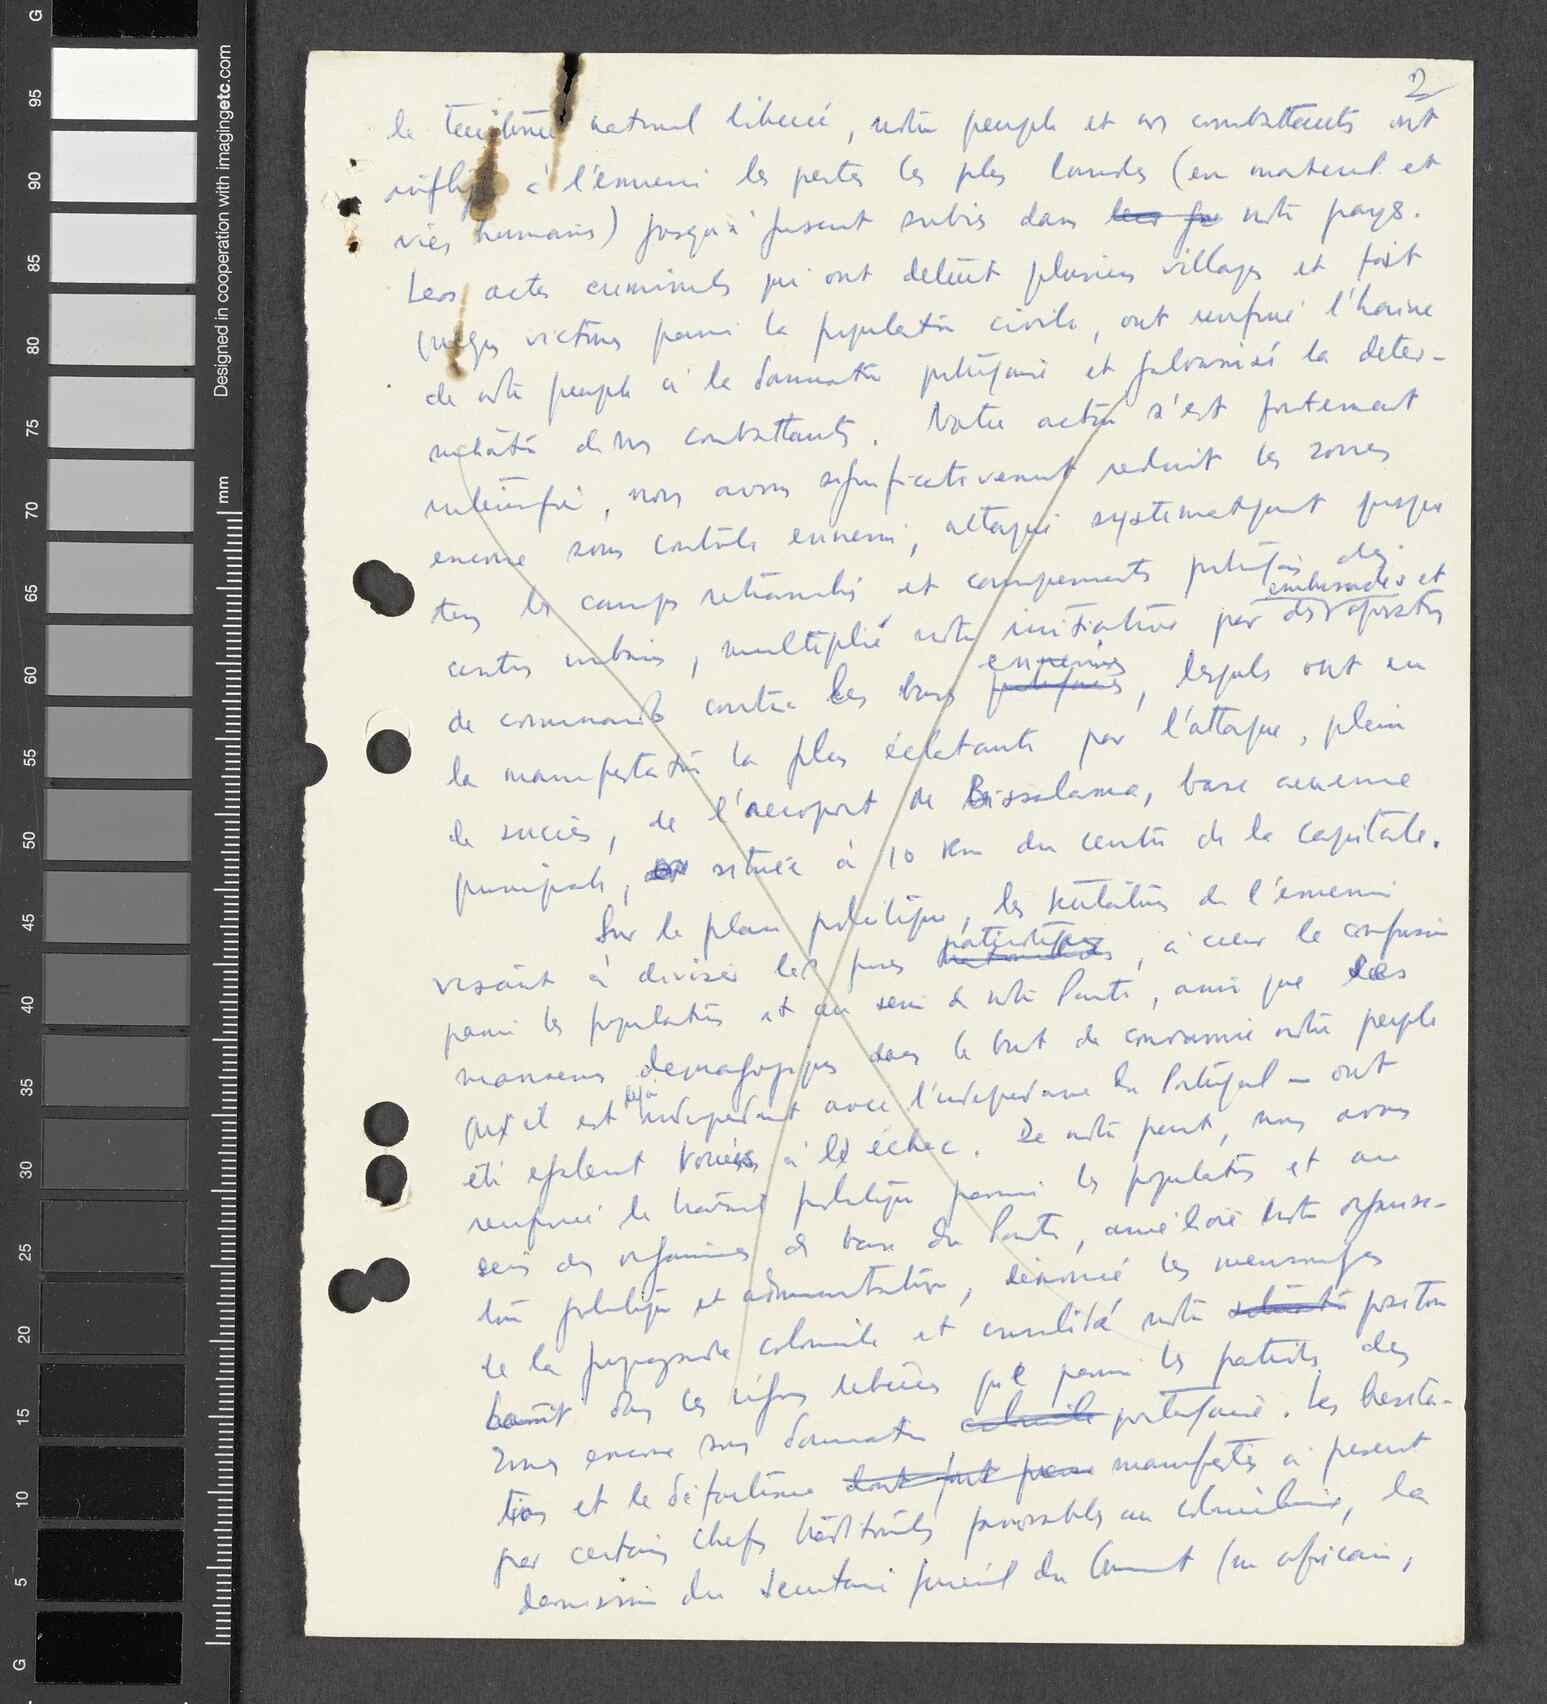 2
le territoire national libéré, notre peuple et nos combattants ont
infligé à l'ennemi les pertes les plus lourdes (en materiel et
vies humaines) jusqu'à present subis dans notre pays.
Les actes criminels qui ont detruit plusieurs villages et fait
victimes parmi la population civile, ont renforcé l'haine
de notre peuple à la domination portugaise et galvanisé la deter-
mination de nos combattants. Notre action s'est fortement
intensifié, nous avons significativement reduit les zones
encore sous contrôle ennemi, attaqué systematiquement presque
tous les camps retranchés et campements portugais des
centres urbains, multiplié notre initiative par des embuscades et operations
de commando contre les bases ennemies, lesquels ont eu
la manifestation la plus éclatante par l'attaque, plein
de succès, de l'aeroport de Bissalanca, base aerienne
principale, située à 10 km du centre de la capitale.
Sur le plan politique, les tentatives de l'ennemi
visant à diviser les forces patriotiques, à créer la confusion
parmi les populations et au sein de notre Parti, ainsi que les
manoeuvres demagogiques dans le but de convaincre notre peuple
qu'il est déjà independant avec l'independance du Portugal – ont
été egalement vouées à l'échec. De notre part, nous avons
renforcé le travail politique parmi les populations et au
sein des organismes de base du Parti, amélioré notre organisa-
tion politique et administrative, dénoncé les mensonges
de la propagande coloniale et consolidé notre position
dans les régions libérées que parmi les patriotes des
zones encore sous domination portugaise. Les hesita-
tions et le défaitisme manifestés à present
par certains chefs traditionnels favorables au colonialisme, la
demission du secretaire general du Gouvernement (un africain,